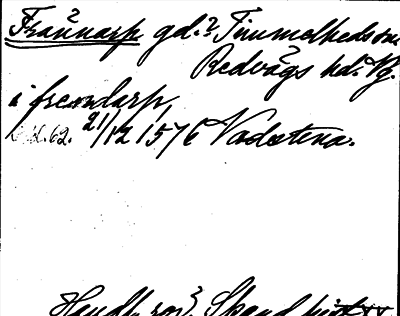 Frännarp gd.? Timmelheds sn
Redvägs hd. Vg.
i frenndarp,
62. 21/12 1576 Vadstena.
Handl. rör. Skand